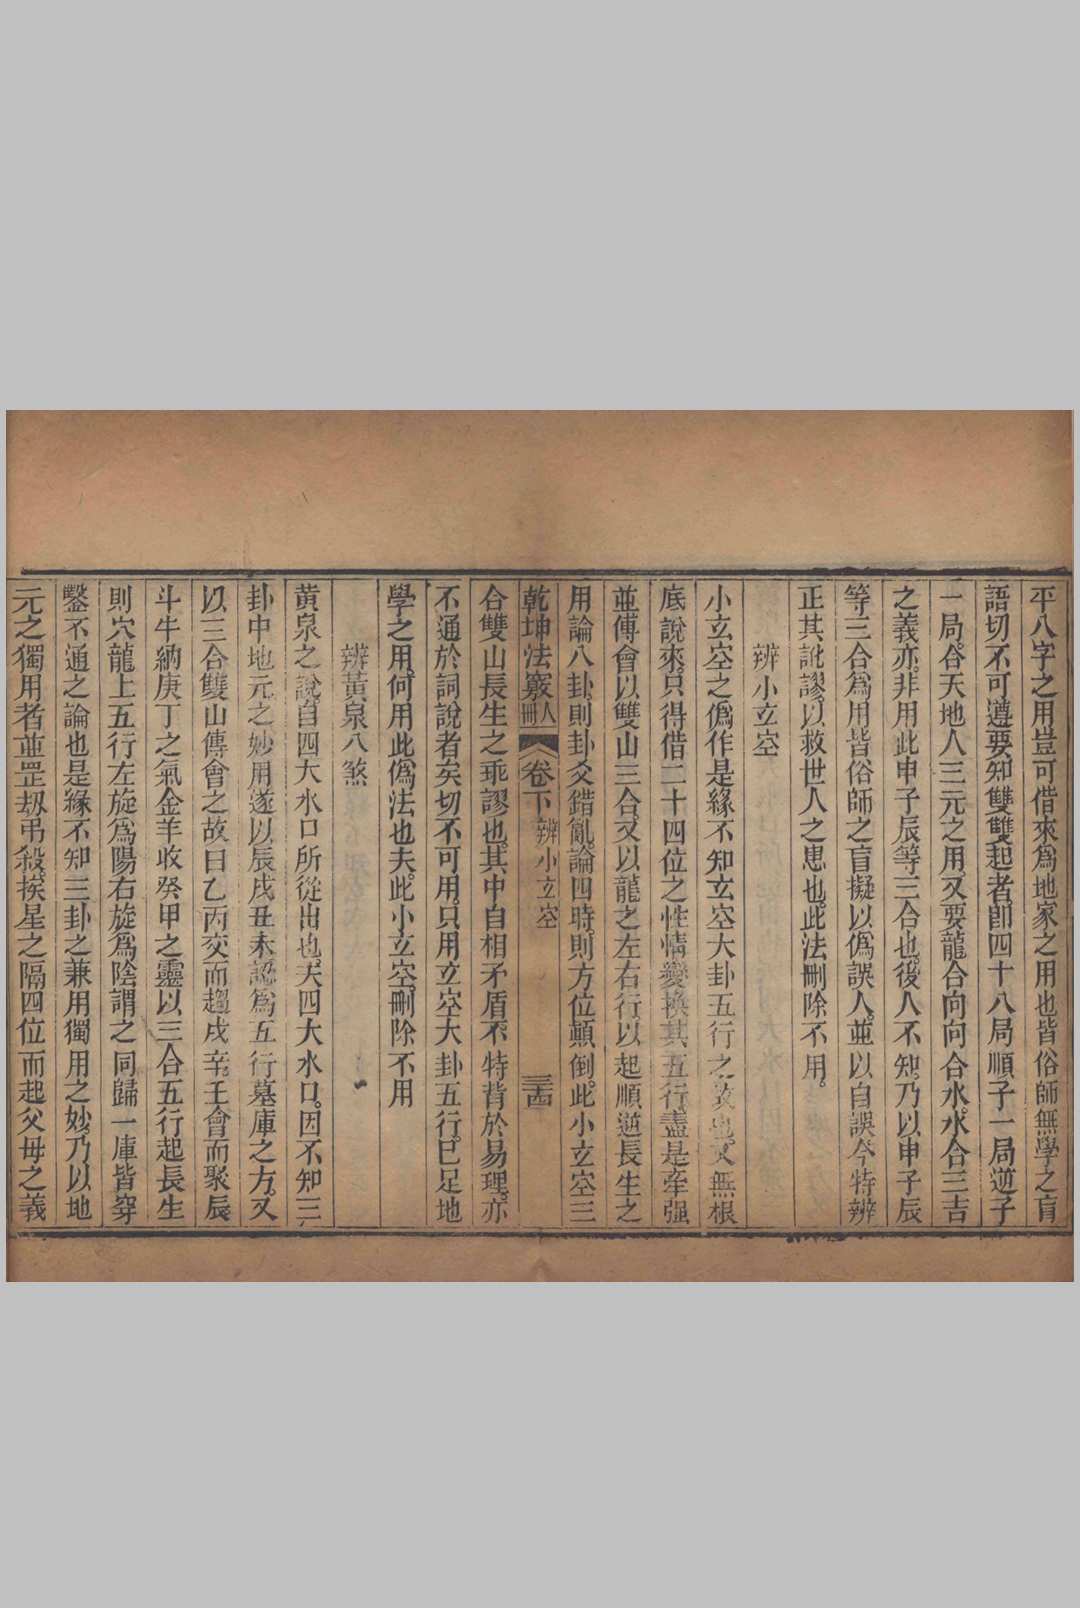 平八字之用豈可借來爲地家之用也皆俗師無學之盲
語切不可遵要知雙雙起者卽四十八局順子一局逆子
一局。合天地人三元之用。又要龍合向向合水。水合三吉
之義亦。非用此申子辰等三合也。後人不知。乃以申子辰
等三合爲用皆俗師之盲擬以僞誤人。並以自誤今特辨
正其訛謬。以救世人之患也。此法刪除不用。
辨小玄空
小玄空之僞作是緣不知玄空大卦五行之故也。又無根
底說來。只得借二十四位之性情變換其五行。盡是牽强
並傅會以雙山三合。又以龍之左右行以起順逆長生之
用論八卦。則卦爻錯亂。論四時。則方位顛倒。此小玄空三
乾坤法竅 人冊 卷下 辨小玄空 三十四
合雙山長生之乖謬也。其中自相矛盾。不特背於易理。亦
不通於詞說者矣切不可用。只用玄空大卦五行。已足地
學之用。何用此僞法也夫。此小玄空。刪除不用
辨黃泉八煞
黄泉之說。自四大水口所從出也。夫四大水口。因不知三
卦中地元之妙用遂以辰戌丑未認爲五行墓庫之方。又
以三合雙山傅會之故曰乙丙交而趨戌辛。壬會而聚辰
斗牛納庚丁之氣金羊收癸甲之靈以三合五行起長生
則穴龍上五行左旋爲陽右旋爲陰謂之同歸一庫皆穿
鑿不通之論也是緣不知三卦之兼用獨用之妙。乃以地
元之獨用者並罡刼弔殺。挨星之隔四位而起父毋之義